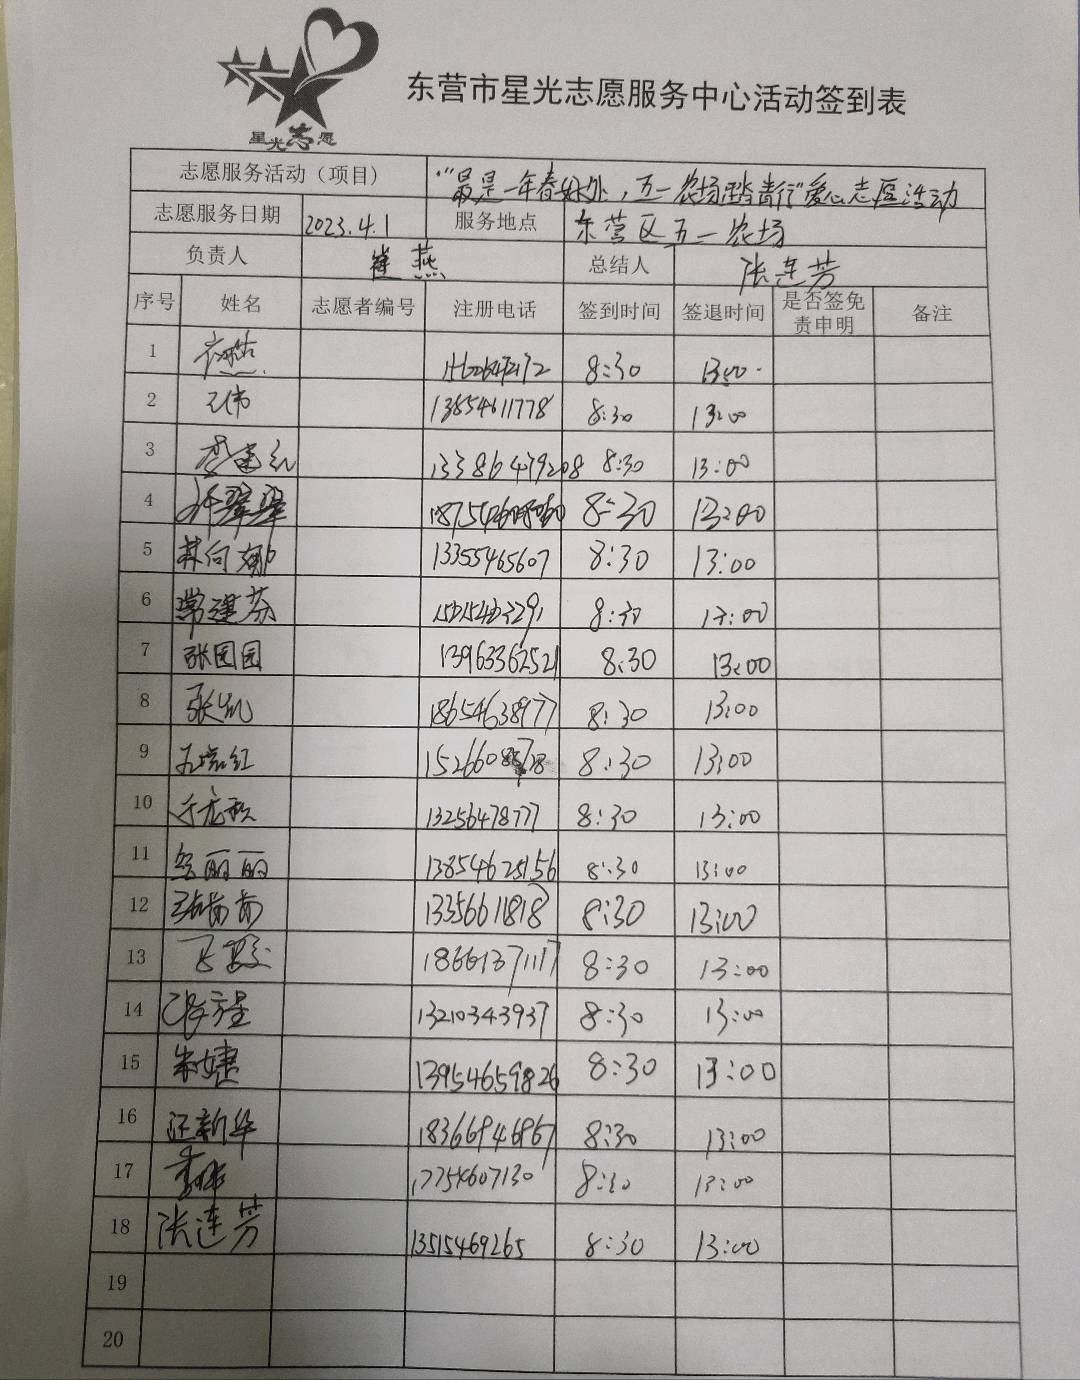 星光志愿
东营市星光志愿服务中心活动签到表
志愿服务活动（项目） "最是一年春好处，五一农场踏青行"爱心志愿活动
志愿服务日期 2023.4.1 服务地点 东营区五一农场
负责人 崔燕 总结人 张连芳
序号 姓名 志愿者编号 注册电话 签到时间 签退时间 是否签免责申明 备注
1 8:30 13:00
2 13854611778 8:30 13:00
3 13386479208 8:30 13:00
4 许翠翠 8:30 13:00
5 林向娜 13355465607 8:30 13:00
6 常建芬 8:30 13:00
7 张园园 13963362521 8:30 13:00
8 张凯 18654638977 8:30 13:00
9 8:30 13:00
10 13256478777 8:30 13:00
11 丽丽 13854625156 8:30 13:00
12 13356611818 8:30 13:00
13 18661371117 8:30 13:00
14 13210343937 8:30 13:00
15 朱婕 13954659826 8:30 13:00
16 新华 18366946967 8:30 13:00
17 17754607130 8:30 13:00
18 张连芳 13515469265 8:30 13:00
19
20